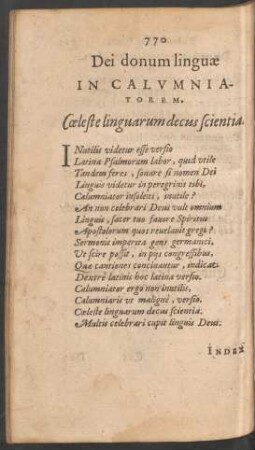 770
Dei donum linguæ
IN CALVMNIA-
TOREM.
Cœleste linguarum decus scientia.
INutilis videtur esse versio
Latina Psalmorum labor, quid vtile
Tandem feres, sonare si nomen Dei
Linguis videtur in peregrinis tibi,
Calumniator insolens, inutile?
An non celebrari Deus vult omnium
Linguis, sacer tuo fauore Spiritus
Apostolorum quos reuelauit gregi?
Sermonis imperita gens germanici,
Vt scire possit, in pijs congressibus,
Que cantiones concinantur, indicat
Dextrè latinis hoc latina versio.
Calumniator ergo non inutilis,
Calumniaris vt malignè, versio.
Cœleste linguarum decus scientia.
Multis celebrari cupit linguis Deus.
INDEX